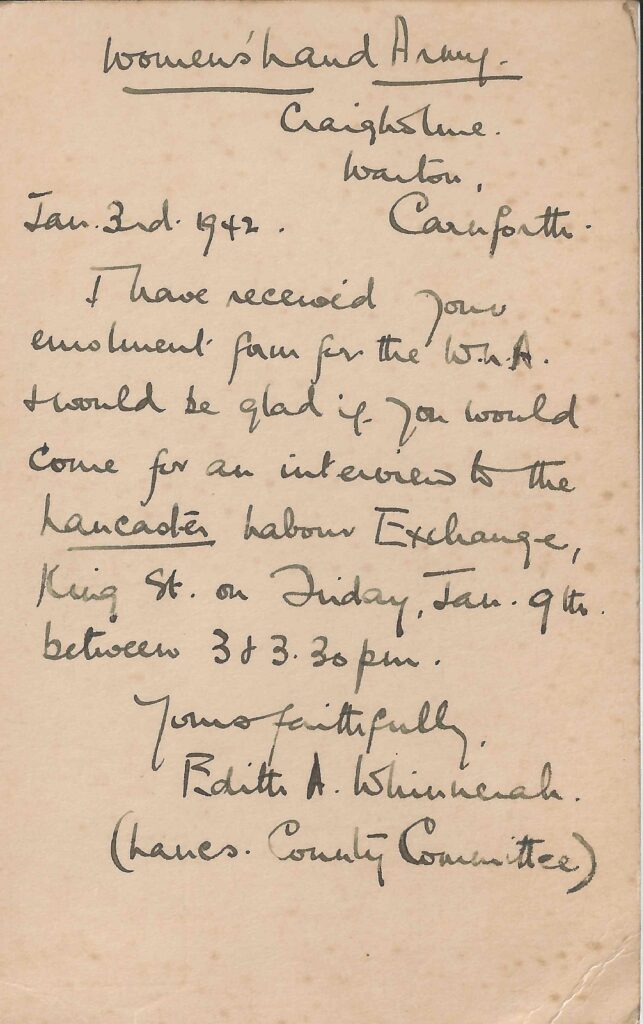 Women's Land Army.
Craigholme.
Warton,
Jan. 3rd. 1942. Carnforth.
I have received your
enrolment form for the W.L.A.
& would be glad if you would
come for an interview to the
Lancaster Labour Exchange,
King St. on Friday, Jan. 9th.
between 3 & 3.30 pm.
Yours faithfully,
Edith A. Whinnerah.
(Lancs. County Committee)